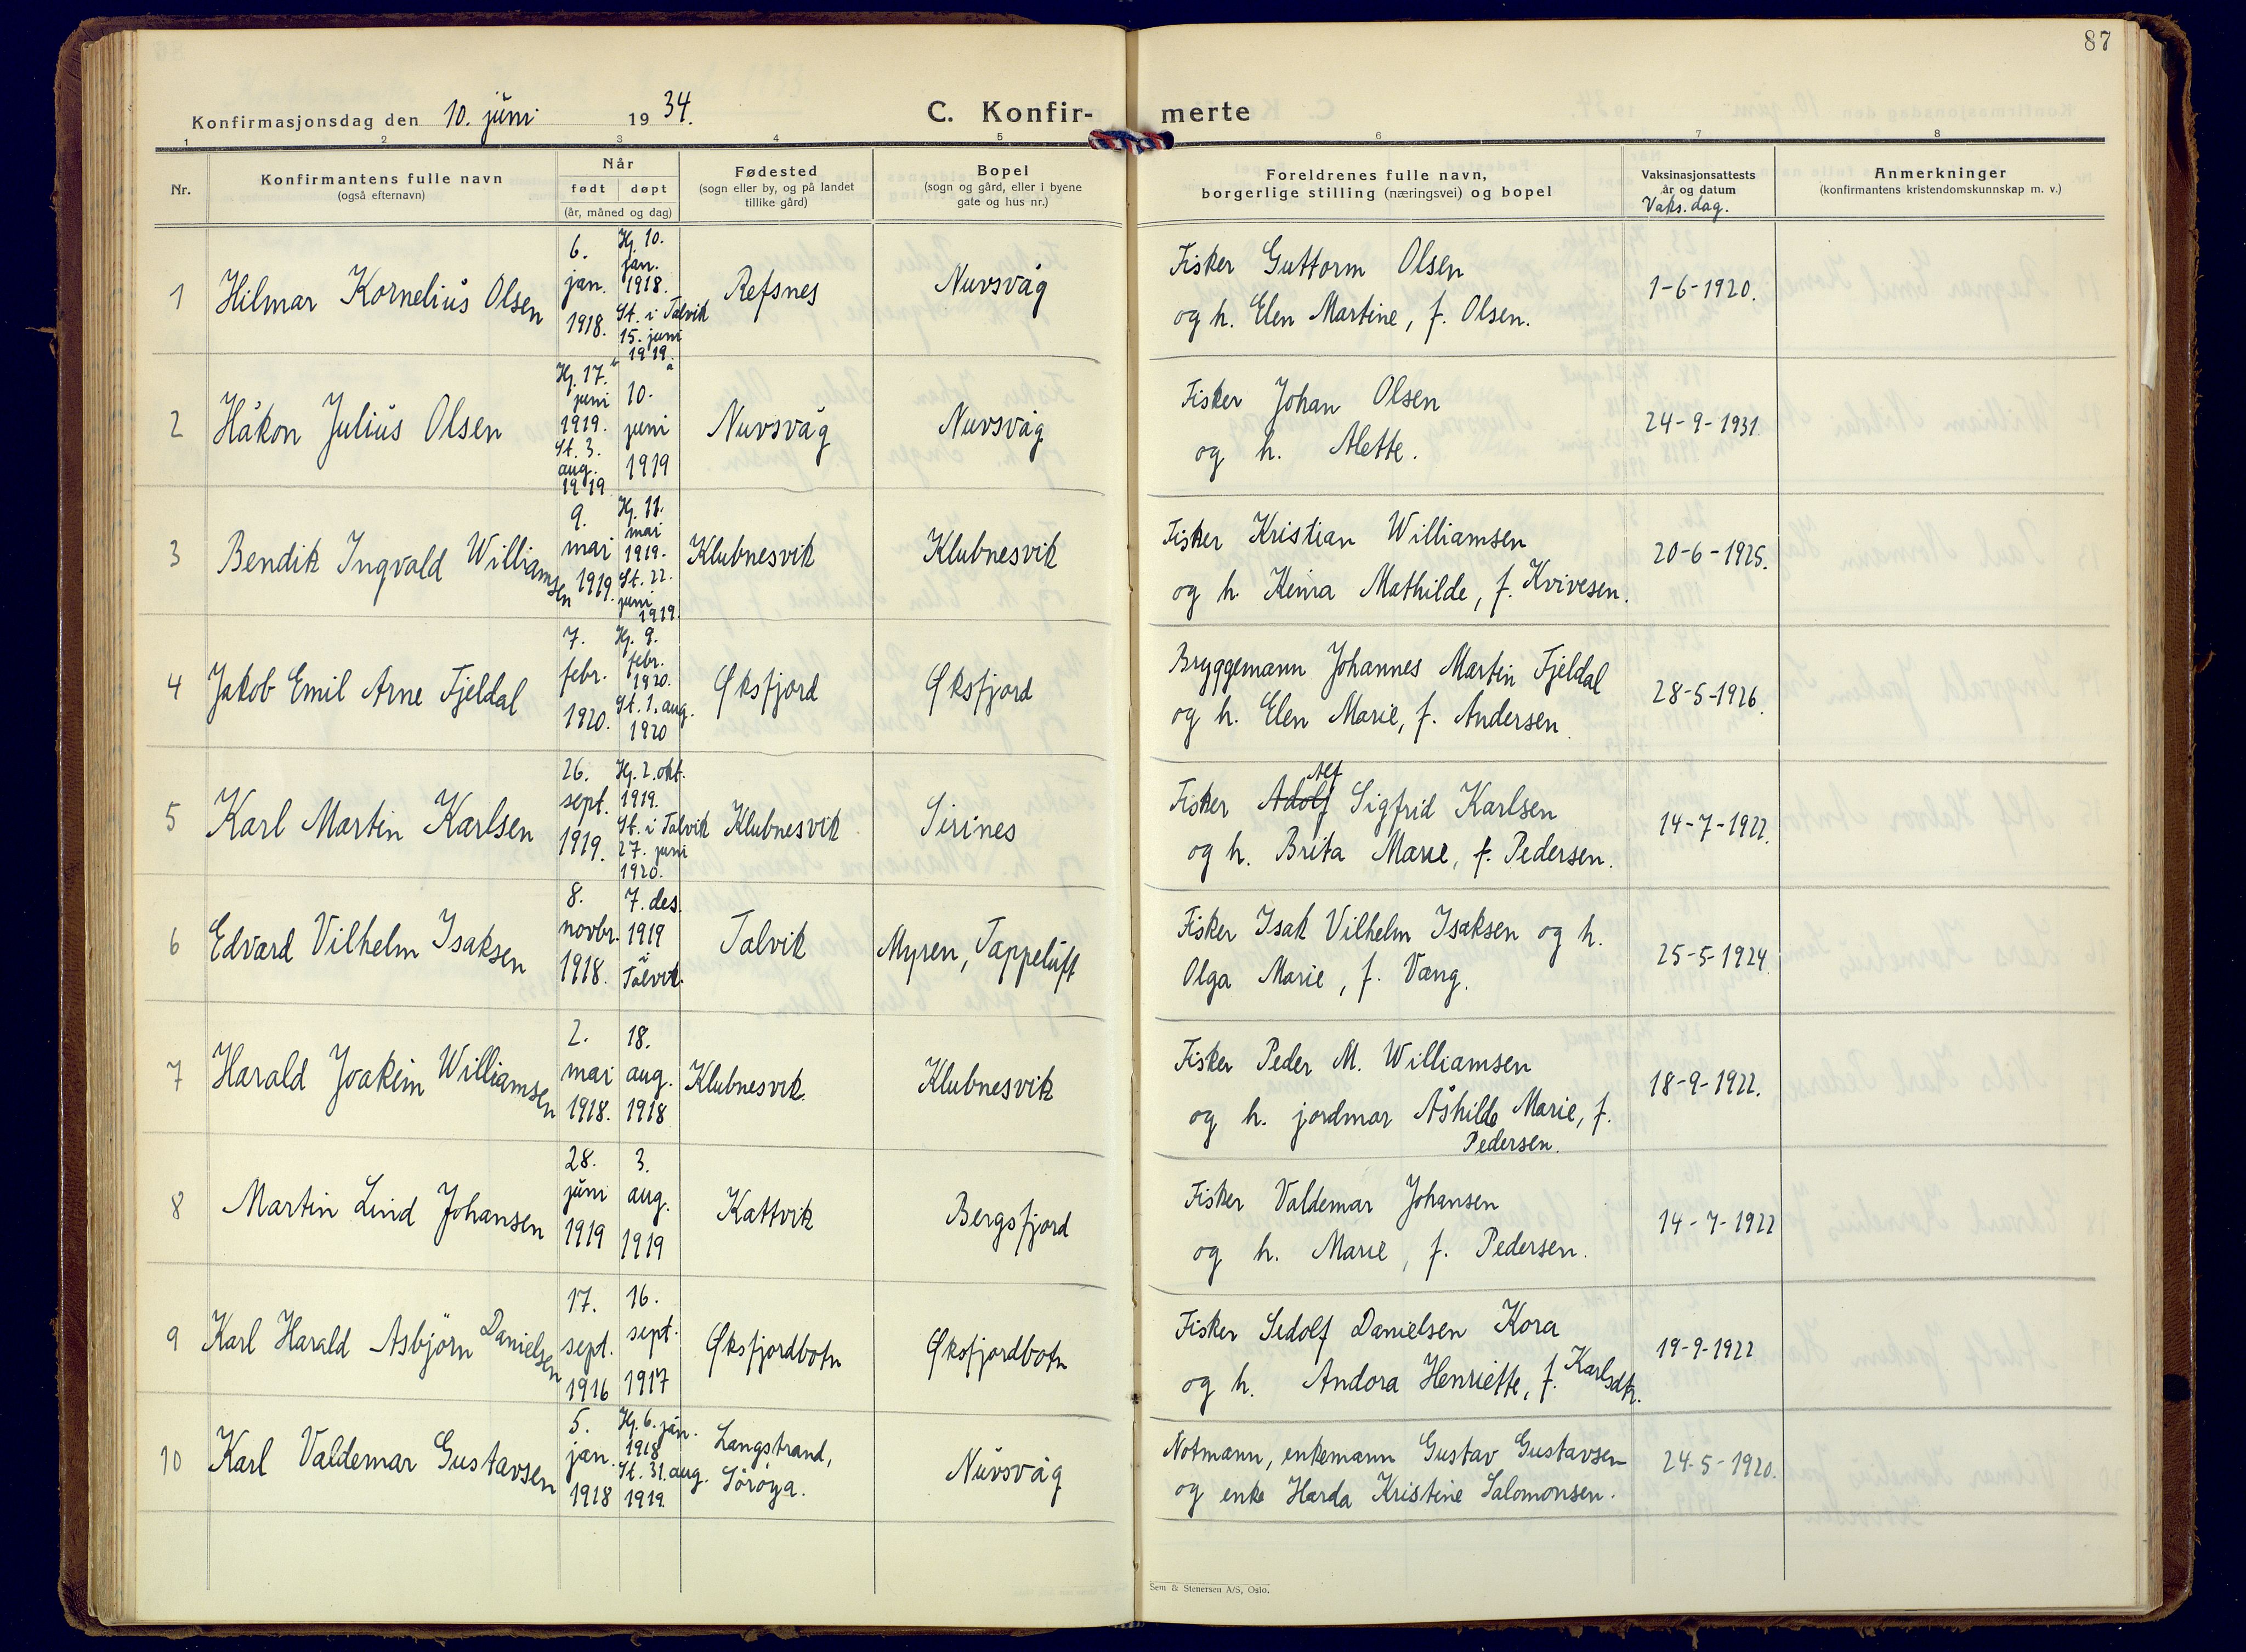 87
Konfirmasjonsdag den 10. juni 1934.
C. Konfir-merte
1 2 3 4 5 6 7 8
Nr.
Konfirmantens fulle navn
(også efternavn)
Når
født døpt
(år, måned og dag)
Fødested
(sogn eller by, og på landet
tillike gård)
Bopel
(sogn og gård, eller i byene
gate og hus nr.)
Foreldrenes fulle navn,
borgerlige stilling (næringsvei) og bopel
Vaksinasjonsattests
år og datum
Vaks. dag.
Anmerkninger
(konfirmantens kristendomskunnskap m. v.)
1
Hilmar Kornelius Olsen
6.
jan.
1918.
Hj. 10.
jan.
1918.
St. i Talvik
15. juni
1919.
Refsnes
Nuvsvåg
Fisker Guttorm Olsen
og h. Elen Martine, f. Olsen.
1-6-1920.
2
Håkon Julius Olsen
Hj. 17.
juni
1919.
St. 3.
aug.
1919
10.
juni
1919
Nuvsvåg
Nuvsvåg
Fisker Johan Olsen
og h. Alette.
24-9-1931
3
Bendik Ingvald Williamsen
9.
mai
1919.
Hj. 11.
mai
1919.
St. 22.
juni
1919.
Klubnesvik
Klubnesvik
Fisker Kristian Williamsen
og h. Keina Mathilde, f. Kvivesen.
20-6-1925.
4
Jakob Emil Arne Fjeldal
7.
febr.
1920.
Hj. 9.
febr.
1920.
St. 1. aug.
1920
Øksfjord
Øksfjord
Bryggemann Johannes Martin Fjeldal
og h. Elen Marie, f. Andersen.
28-5-1926.
5
Karl Martin Karlsen
26.
sept.
1919.
Hj. 2. okt.
1919.
St. i Talvik
27. juni
1920.
Klubnesvik
Sirines
Alf
Fisker Adolf Sigfrid Karlsen
og h. Brita Marie, f. Pedersen.
14-7-1922.
6
Edvard Vilhelm Isaksen
8.
novbr.
1918.
7. des.
1919
i
Talvik.
Talvik
Myren, Tappeluft
Fisker Isak Vilhelm Isaksen og h.
Olga Marie, f. Vang.
25-5-1924.
7
Harald Joakim Williamsen
2.
mai
1918.
18.
aug.
1918
Klubnesvik.
Klubnesvik
Fisker Peder M. Williamsen
og h. jordmor Åshilde Marie, f.
Pedersen.
18-9-1922.
8
Martin Lind Johansen
28.
juni
1919
3.
aug.
1919
Kattvik
Bergsfjord
Fisker Valdemar Johansen
og h. Marie, f. Pedersen.
14-7-1922
9
Karl Harald Asbjörn Danielsen
17.
sept.
1916
16.
sept.
1917
Øksfjordbotn
Øksfjordbotn
Fisker Sedolf Danielsen Kora
og h. Andora Henriette, f. Karlsdtr.
19-9-1922
10
Karl Valdemar Gustavsen
5.
jan.
1918
Hj. 6. jan.
1918
St. 31. aug.
1919.
Langstrand,
Sörøya.
Nuvsvåg
Notmann, enkemann Gustav Gustavsen
og enke Harda Kristine Salomonsen.
24-5-1920.
Sem & Stenersen A/S, Oslo.